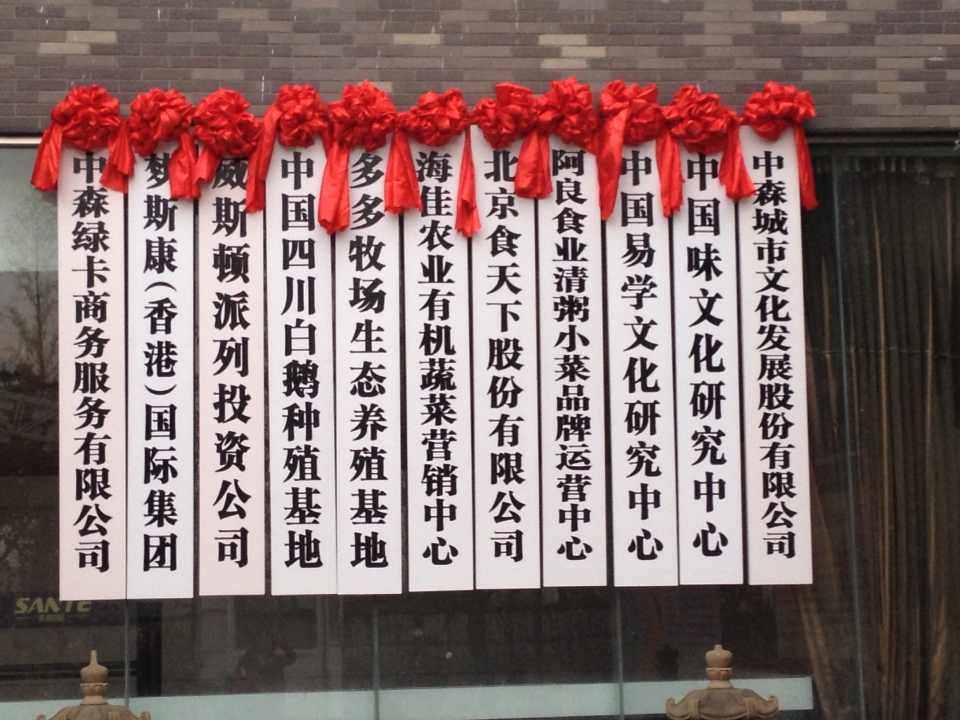 中森绿卡商务服务有限公司
梦斯康(香港)国际集团
威斯顿派列投资公司
中国四川白鹅种殖基地
多多牧场生态养殖基地
海佳农业有机蔬菜营销中心
北京食天下股份有限公司
阿良食业清粥小菜品牌运营中心
中国易学文化研究中心
中国味文化研究中心
中森城市文化发展股份有限公司
SANTE